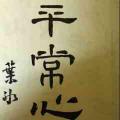 平常心
葉小